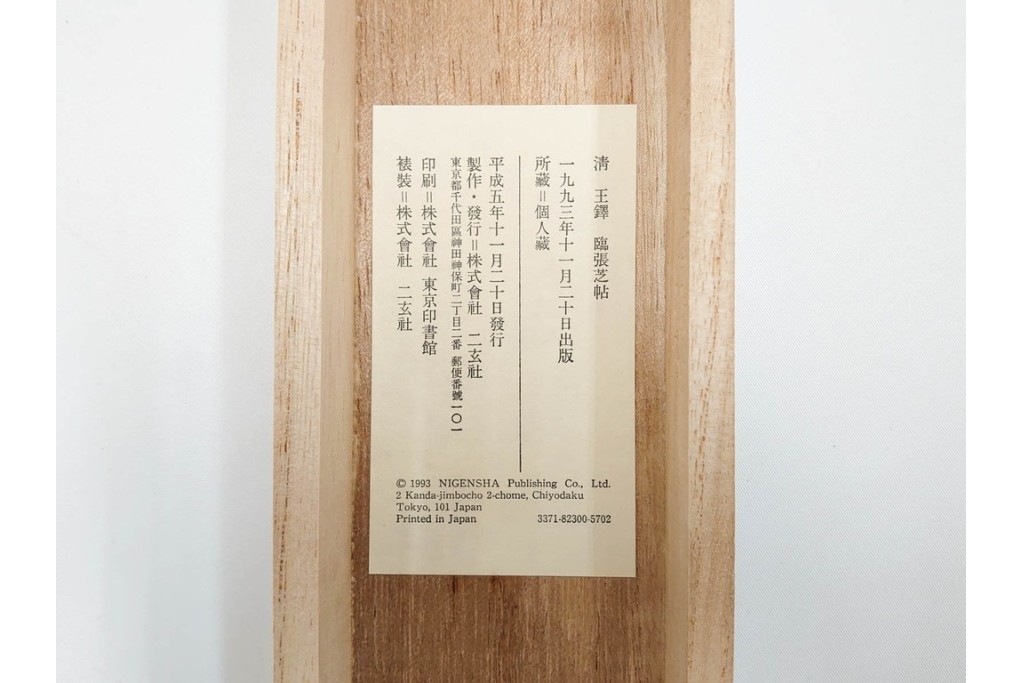 清　王鐸　臨張芝帖
一九九三年十一月二十日出版
所藏＝個人藏
平成五年十一月二十日發行
製作・發行＝株式會社　二玄社
東京都千代田區神田神保町二丁目二番　郵便番號一〇一
印刷＝株式會社　東京印書館
裱裝＝株式會社　二玄社
© 1993 NIGENSHA Publishing Co., Ltd.
2 Kanda-jimbocho 2-chome, Chiyodaku
Tokyo, 101 Japan
Printed in Japan 3371-82300-5702